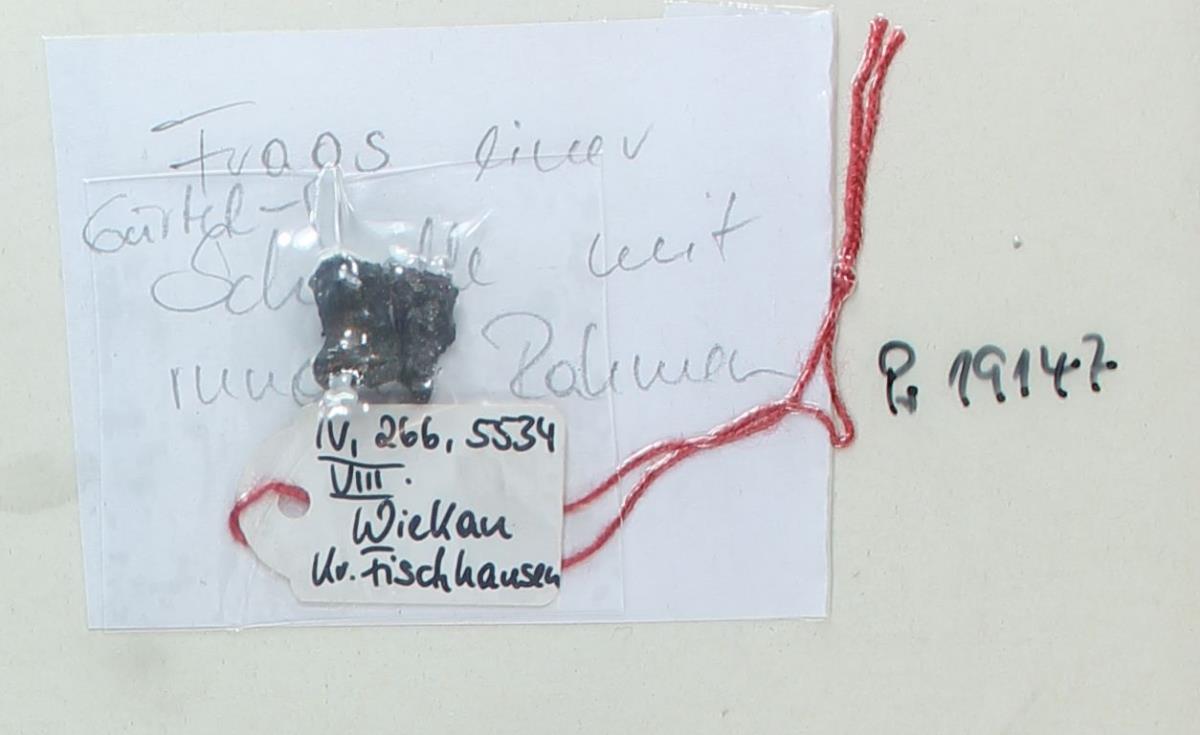 Frags einer
Gürtel-
mit
Rahmen
IV, 266, 5534
VIII.
Wiekau
Kr. Fischhausen
Pr 19147.